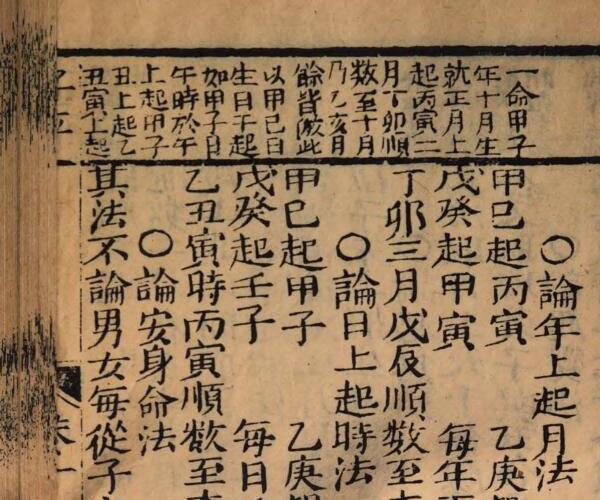 一命甲子
年十月生
就正月上
起丙寅二
月丁卯順
數至十月
乃乙亥月
餘皆倣此
以甲巳日
生日干起
如甲子日
午時於午
上起甲子
丑上起乙
丑寅上起
〇論年上起月法
甲巳起丙寅　乙庚
戊癸起甲寅　每年
丁卯三月戊辰順數至
〇論日上起時法
甲巳起甲子　乙庚
戊癸起壬子　每日
乙丑寅時丙寅順數至
〇論安身命法
其法不論男女每從子